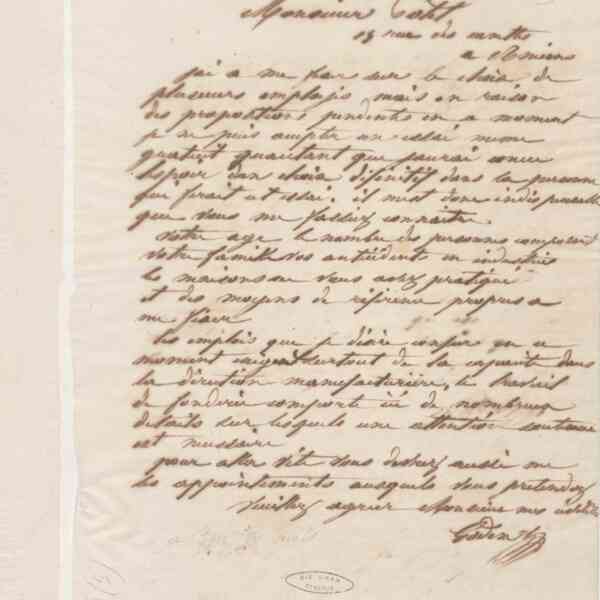 Monsieur Petit
18 rue des
a Amiens
j'ai a me fixer sur le choix de
plusieurs employés mais en raison
des propositions pendantes en ce moment
je ne puis accepter un essai meme
gratuit qu'autant que j'aurai concu
l'espoir d'un choix définitif dans la personne
qui ferait cet essai. il m'est donc indispensable
que vous me fassiez connaitre.
votre age le nombre des personnes composant
votre famille vos antécédents en industrie
les maisons ou vous avez pratiqué
et des moyens de référence propres a
me fixer
les emplois que je désire confier en ce
moment exigent surtout de la capacité dans
la direction manufacturière, le travail
de fonderie comporte ici de nombreux
details sur lesquels une attention soutenue
est necessaire
pour aller vite vous devrez aussi me
les appointements auxquels vous prétendez
veuillez agréer Monsieur mes civilités
Godin